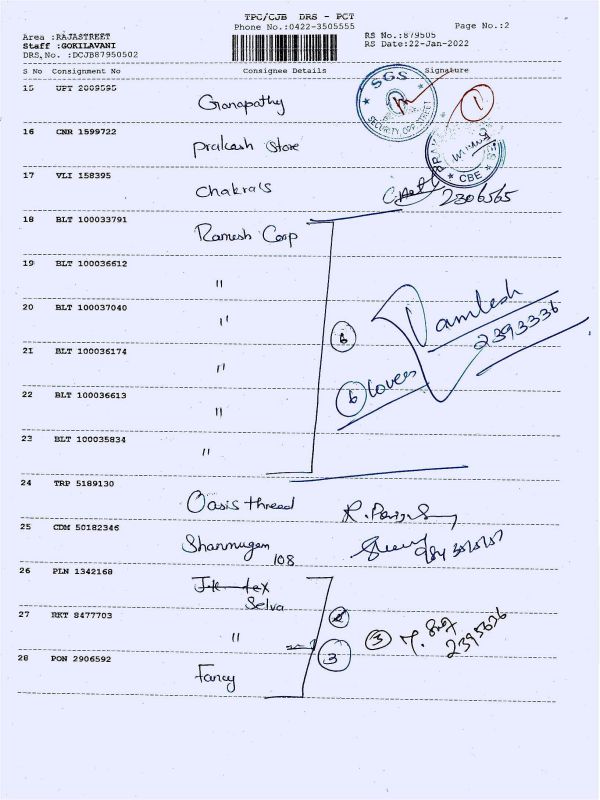 TPC/CJB DRS - PCT
Phone No.:0422-3505555 Page No.:2
Area :RAJASTREET RS No.:879505
Staff :GOKILAVANI RS Date:22-Jan-2022
DRS, No. :DCJB87950502
S No Consignment No Consignee Details Signature
15 UPT 2009595
Ganapathy
SGS
SECURITY OPP STREET
1
16 CNR 1599722
Prakash Store
CBE
17 VLI 158395
Chakra's
2306565
18 BLT 100033791
Ramesh Corp
19 BLT 100036612
"
20 BLT 100037040
"
Damlesh
2393336
6
21 BLT 100036174
"
6 Covers
22 BLT 100036613
"
23 BLT 100035834
"
24 TRP 5189130
Oasis thread
25 CDM 50182346
Shanmugam
108
26 PLN 1342168
Selva
27 RKT 8477703
"
3
3
2395626
28 PON 2906592
Fancy